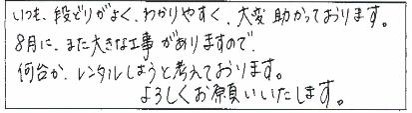 いつも、段どりがよく、わかりやすく、大変助かっております。
8月に、また大きな工事がありますので、
何台か、レンタルしようと考えております。
よろしくお願いいたします。